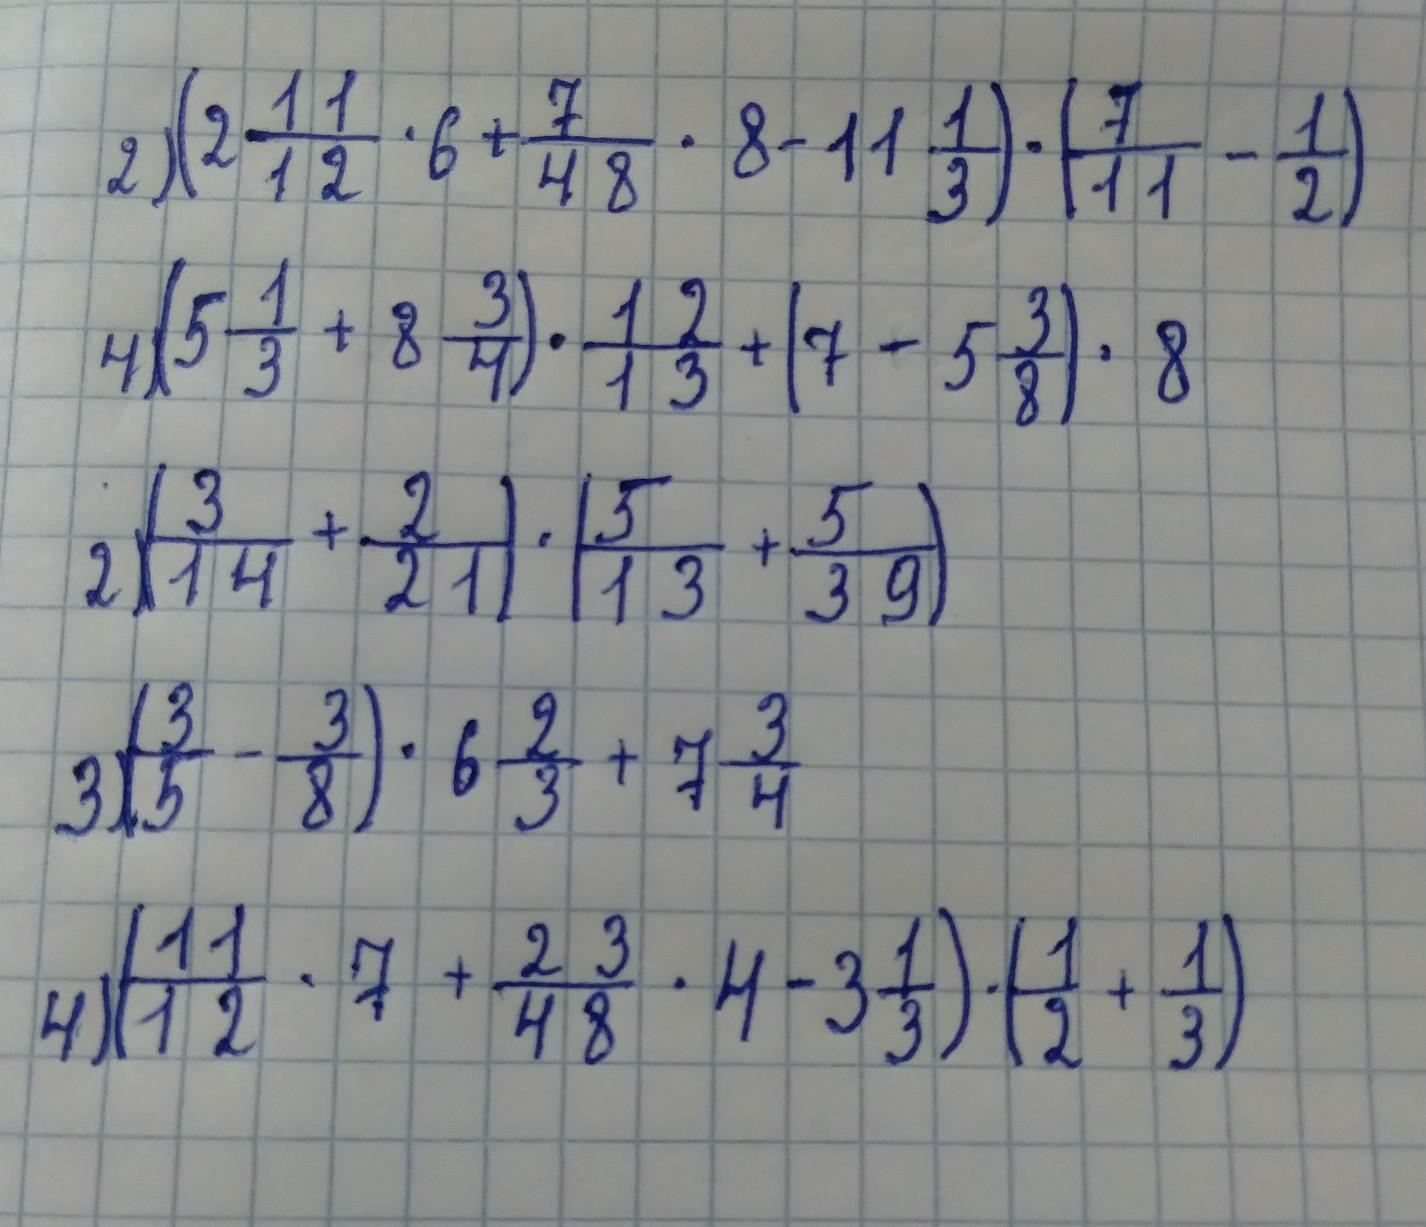 2) (2 11/12 · 6 + 7/48 · 8 - 11 1/3) · (7/11 - 1/2)
4) (5 1/3 + 8 3/4) · 12/13 + (7 - 5 3/8) · 8
2) (3/14 + 2/21) · (5/13 + 5/39)
3) (3/5 - 3/8) · 6 2/3 + 7 3/4
4) (11/12 · 7 + 23/48 · 4 - 3 1/3) · (1/2 + 1/3)